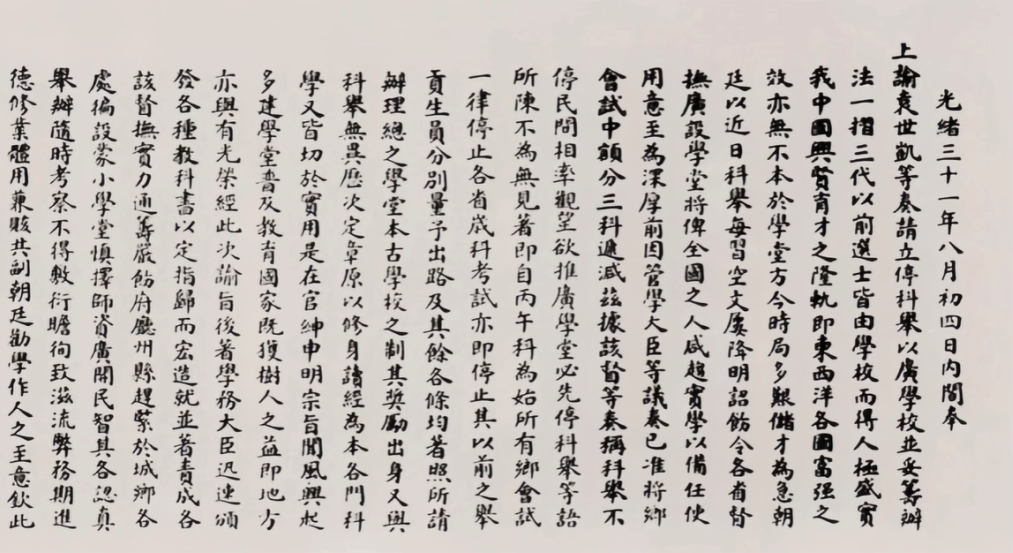 光緒三十一年八月初四日內閣奉
上諭袁世凱等奏請立停科舉以廣學校並妥籌辦
法一摺三代以前選士皆由學校而得人極盛實
我中國興賢育才之隆軌即東西洋各國富强之
效亦無不本於學堂方今時局多艱儲才為急朝
廷以近日科舉每習空文屢降明詔飭令各省督
撫廣設學堂將俾全國之人咸趨實學以備任使
用意至為深厚前因管學大臣等議奏已准將鄉
會試中額分三科遞減茲據該督等奏稱科舉不
停民間相率觀望欲推廣學堂必先停科舉等語
所陳不為無見著即自丙午科為始所有鄉會試
一律停止各省歲科考試亦即停止其以前之舉
貢生員分別量予出路及其餘各條均著照所請
辦理總之學堂本古學校之制其奬勵出身又與
科舉無異歷次定章原以修身讀經為本各門科
學又皆切於實用是在官紳申明宗旨聞風興起
多建學堂普及教育國家既獲樹人之益即地方
亦與有光榮經此次諭旨後著學務大臣迅速頒
發各種教科書以定指歸而宏造就並著責成各
該督撫實力通籌嚴飭府廳州縣趕緊於城鄉各
處徧設蒙小學堂慎擇師資廣開民智其各認真
舉辦隨時考察不得敷衍瞻徇致滋流弊務期進
德修業體用兼賅共副朝廷勸學作人之至意欽此